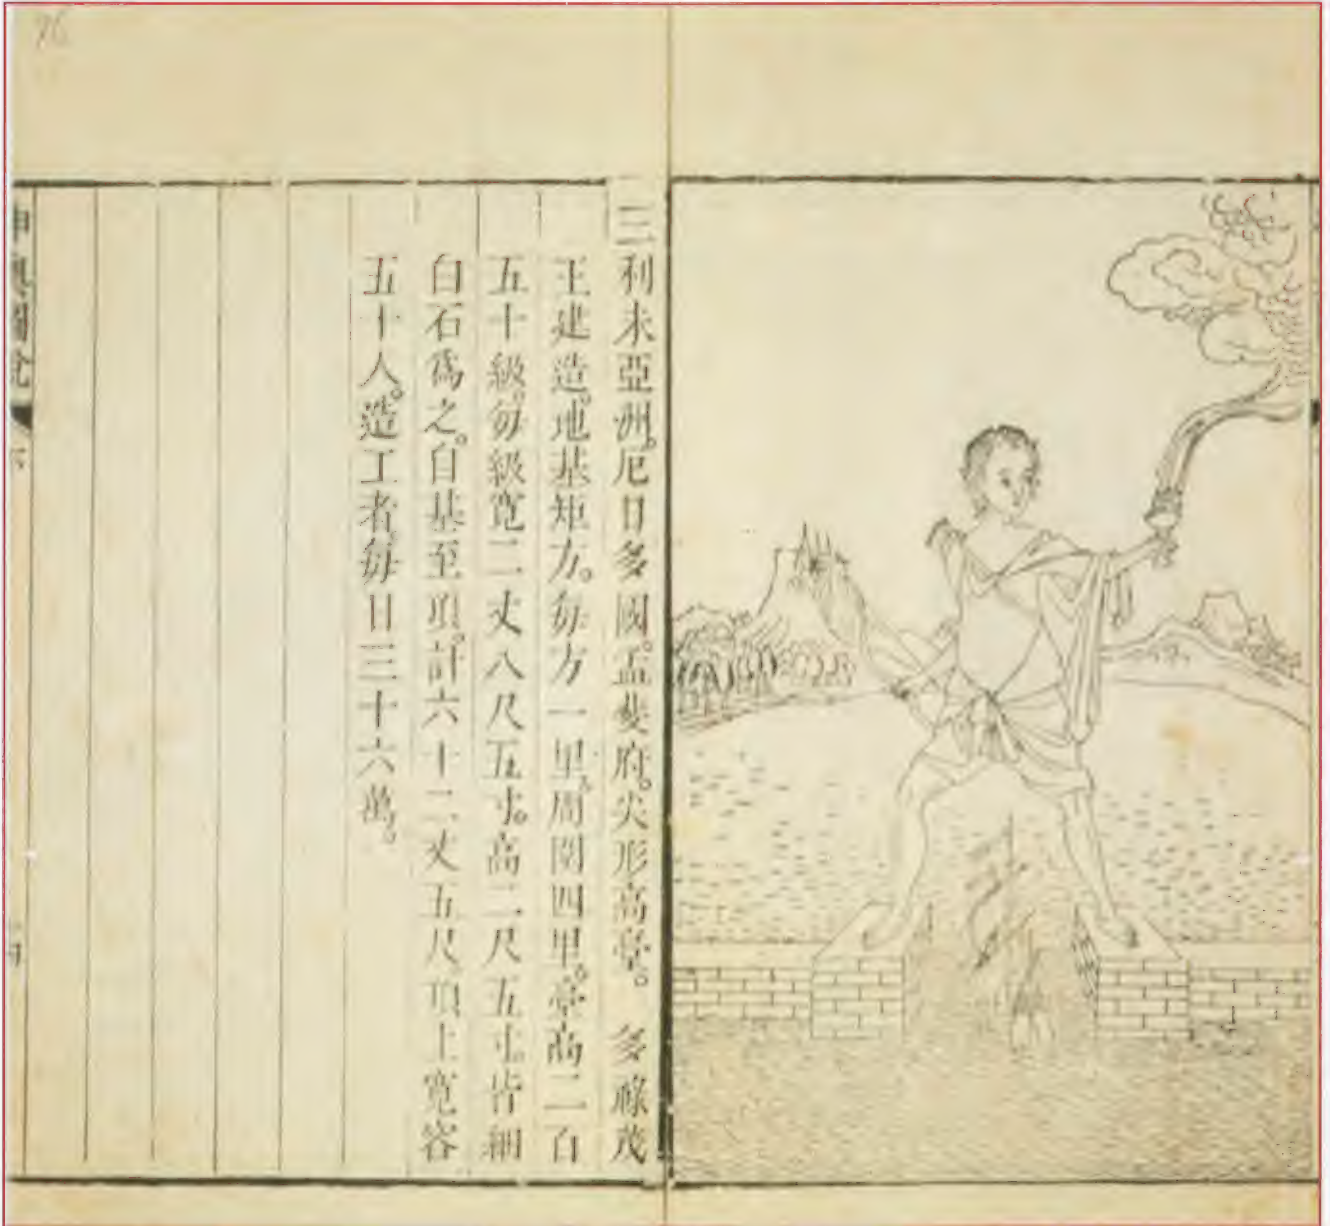 三利未亞洲。厄日多國。孟斐府。尖形高臺。 多祿茂
王建造。地基矩方。每方一里。周圍四里。臺高二百
五十級。每級寬二丈八尺五寸。高二尺五寸。皆細
白石爲之。自基至頂。計六十二丈五尺。頂上寬容
五十人。造工者。每日三十六萬。
坤輿圖說
76